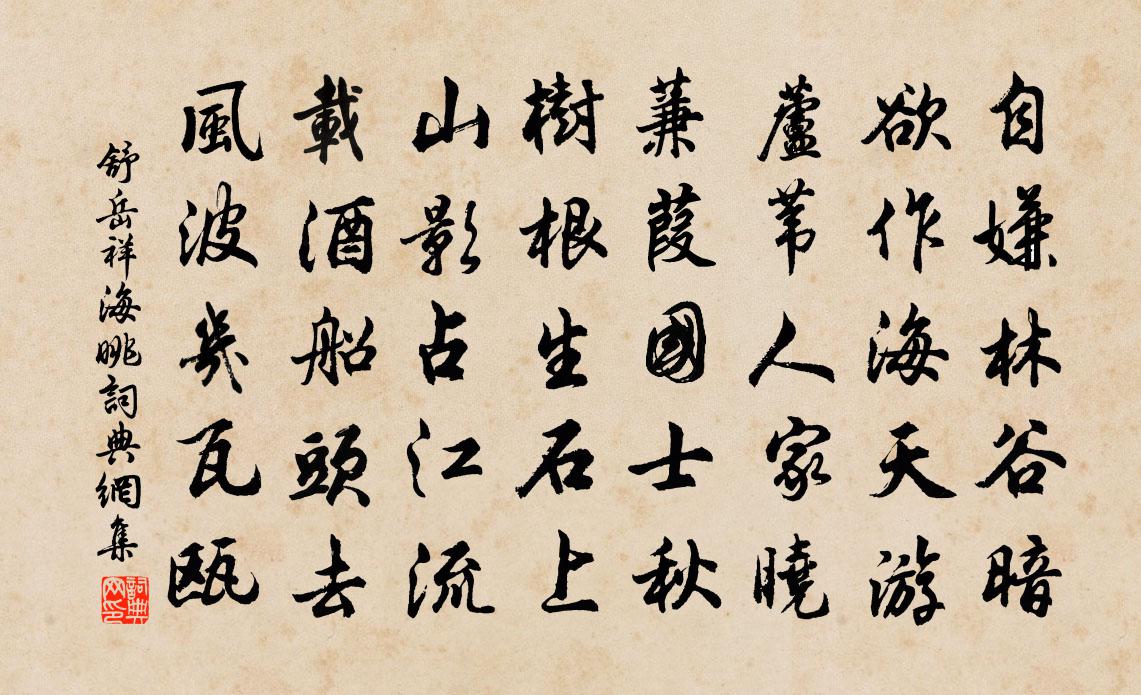 自嫌林谷暗
欲作海天游
蘆葦人家曉
蒹葭國士秋
樹根生石上
山影占江流
載酒船頭去
風波幾瓦甌
舒岳祥海眺詞典網集
詞典
网印